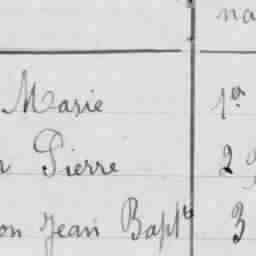 na
Marie 1ª
r Pierre 2
on Jean Baptte 3